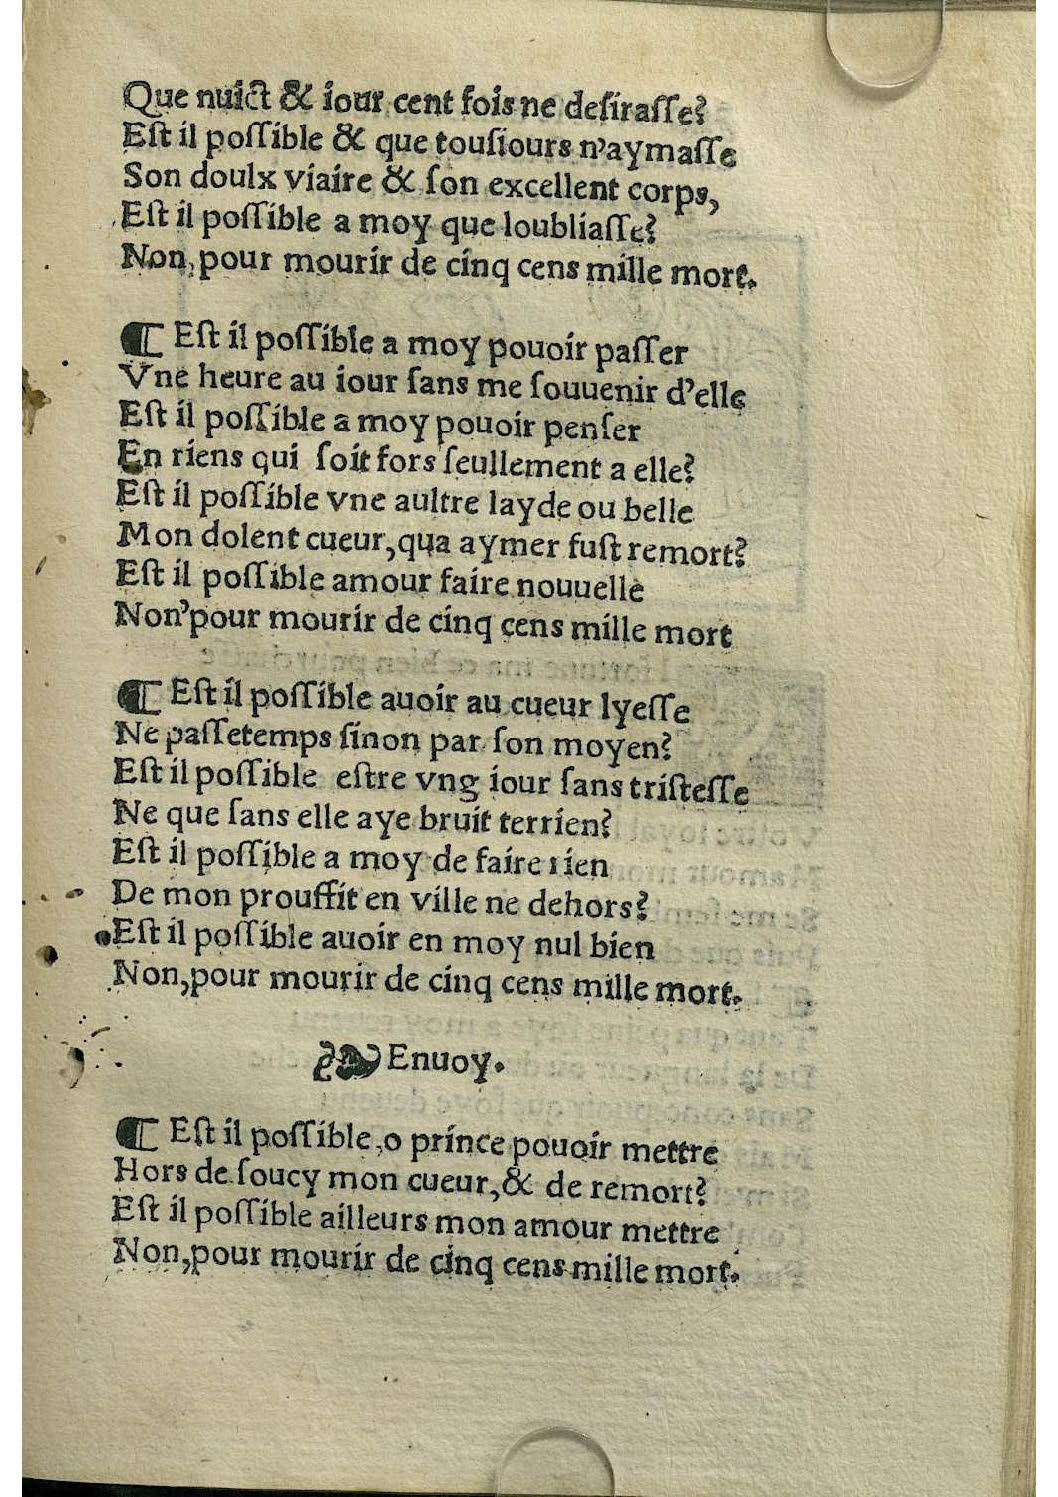 Que nuict & iour cent fois ne desiraſſe?
Eſt il poſſible & que touſiours n'aymaſſe
Son doulx viaire & ſon excellent corps,
Eſt il poſſible a moy que loubliaſſe?
Non, pour mourir de cinq cens mille mort.
¶ Eſt il poſſible a moy pouoir paſſer
Vne heure au iour ſans me ſouuenir d'elle
Eſt il poſſible a moy pouoir penſer
En riens qui ſoit fors ſeullement a elle?
Eſt il poſſible vne aultre layde ou belle
Mon dolent cueur, qua aymer fuſt remort?
Eſt il poſſible amour faire nouuelle
Non'pour mourir de cinq cens mille mort
¶ Eſt il poſſible auoir au cueur lyeſſe
Ne paſſetemps ſinon par ſon moyen?
Eſt il poſſible eſtre vng iour ſans triſteſſe
Ne que ſans elle aye bruit terrien?
Eſt il poſſible a moy de faire rien
De mon prouffit en ville ne dehors?
Eſt il poſſible auoir en moy nul bien
Non, pour mourir de cinq cens mille mort.
❧ Enuoy.
¶ Eſt il poſſible, o prince pouoir mettre
Hors de ſoucy mon cueur, & de remort?
Eſt il poſſible ailleurs mon amour mettre
Non, pour mourir de cinq cens mille mort.